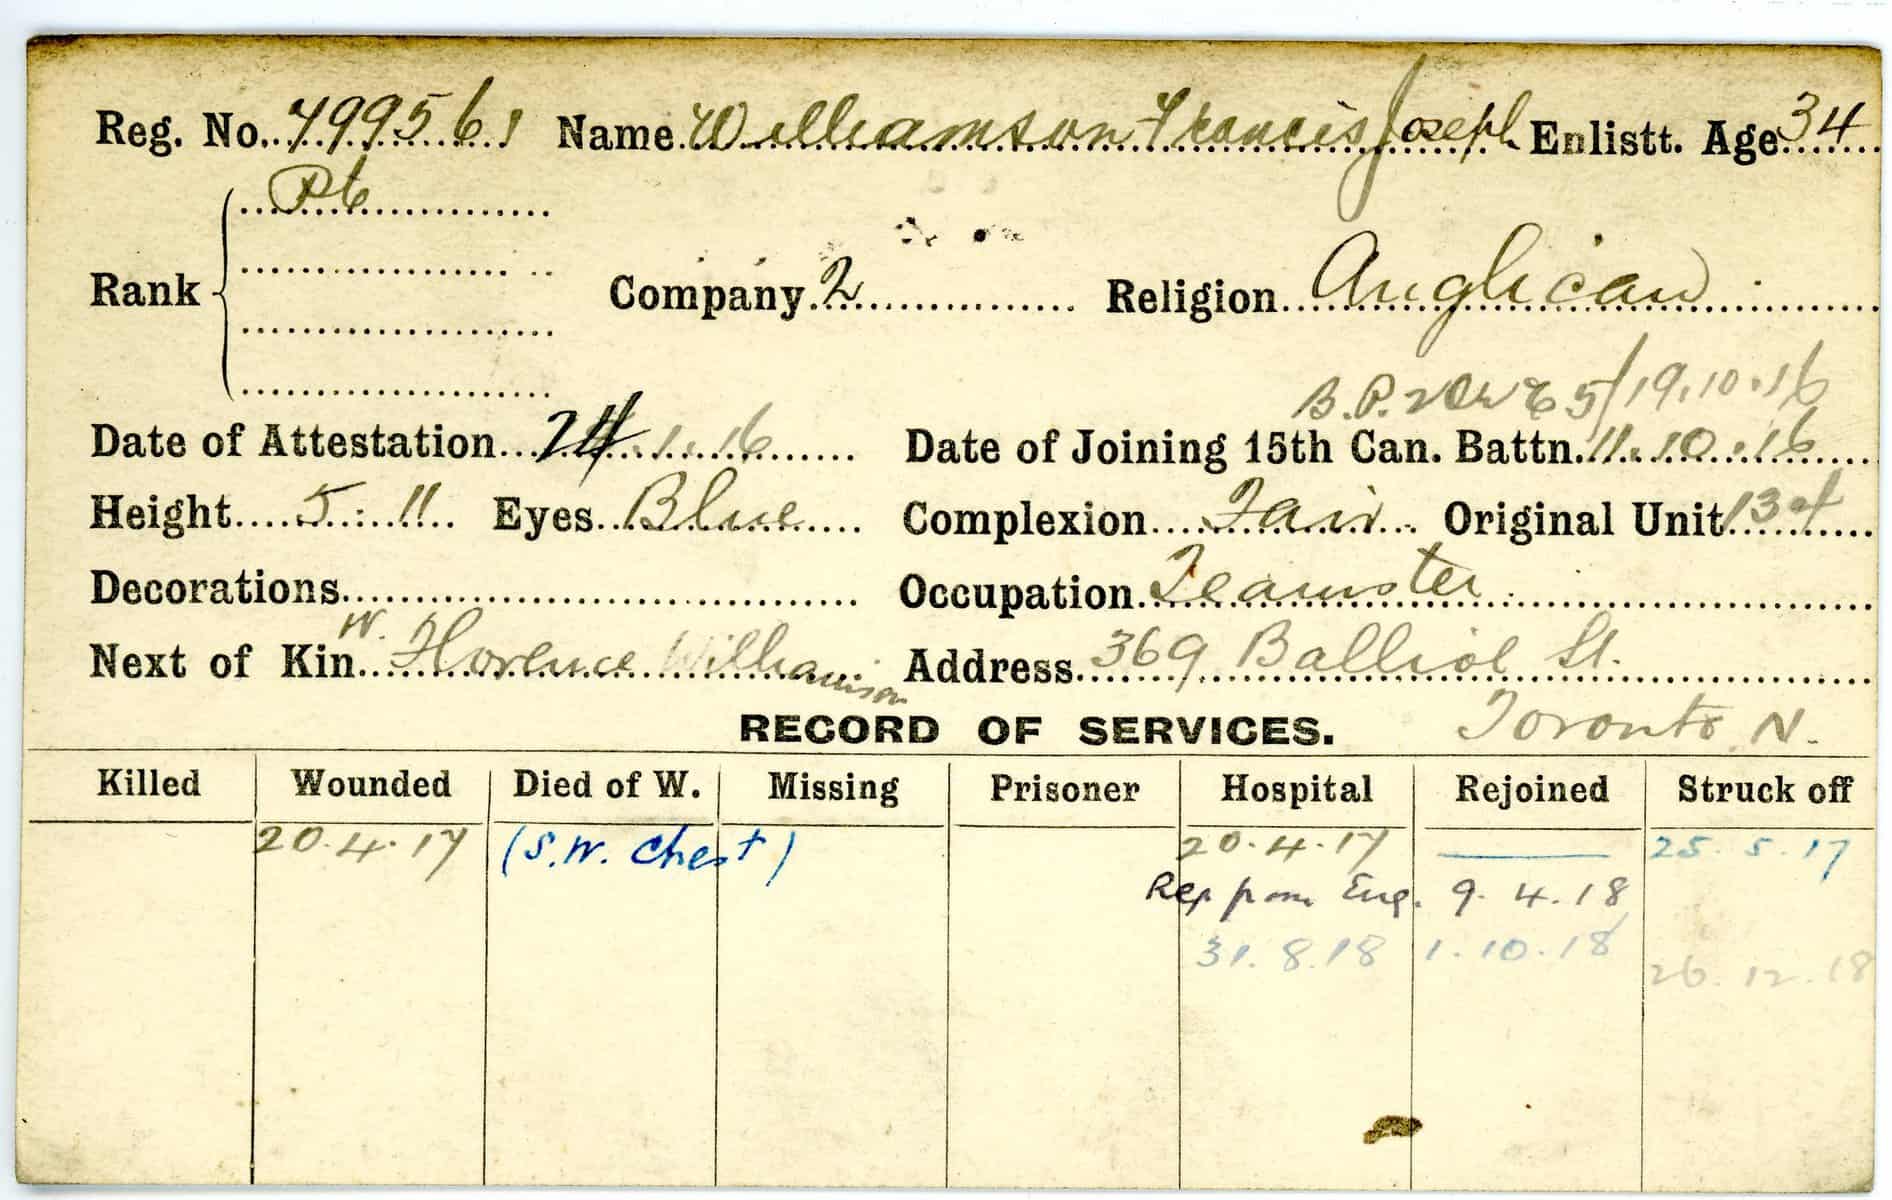 Reg. No. 799561 Name Williamson Francis Joseph Enlistt. Age 34
Pte
Rank Company 2 Religion Anglican
B.P. 19.10.16
Date of Attestation 1.16 Date of Joining 15th Can. Battn. 11.10.16
Height 5. 11 Eyes Blue Complexion Fair Original Unit 134
Decorations Occupation Teamster
W.
Next of Kin Florence Williamson Address 369 Balliol St.
RECORD OF SERVICES. Toronto N.
Killed Wounded Died of W. Missing Prisoner Hospital Rejoined Struck off
20.4.17 (S.W. Chest) 20.4.17 25.5.17
Rep from Eng. 9.4.18
31.8.18 1.10.18
26.12.18